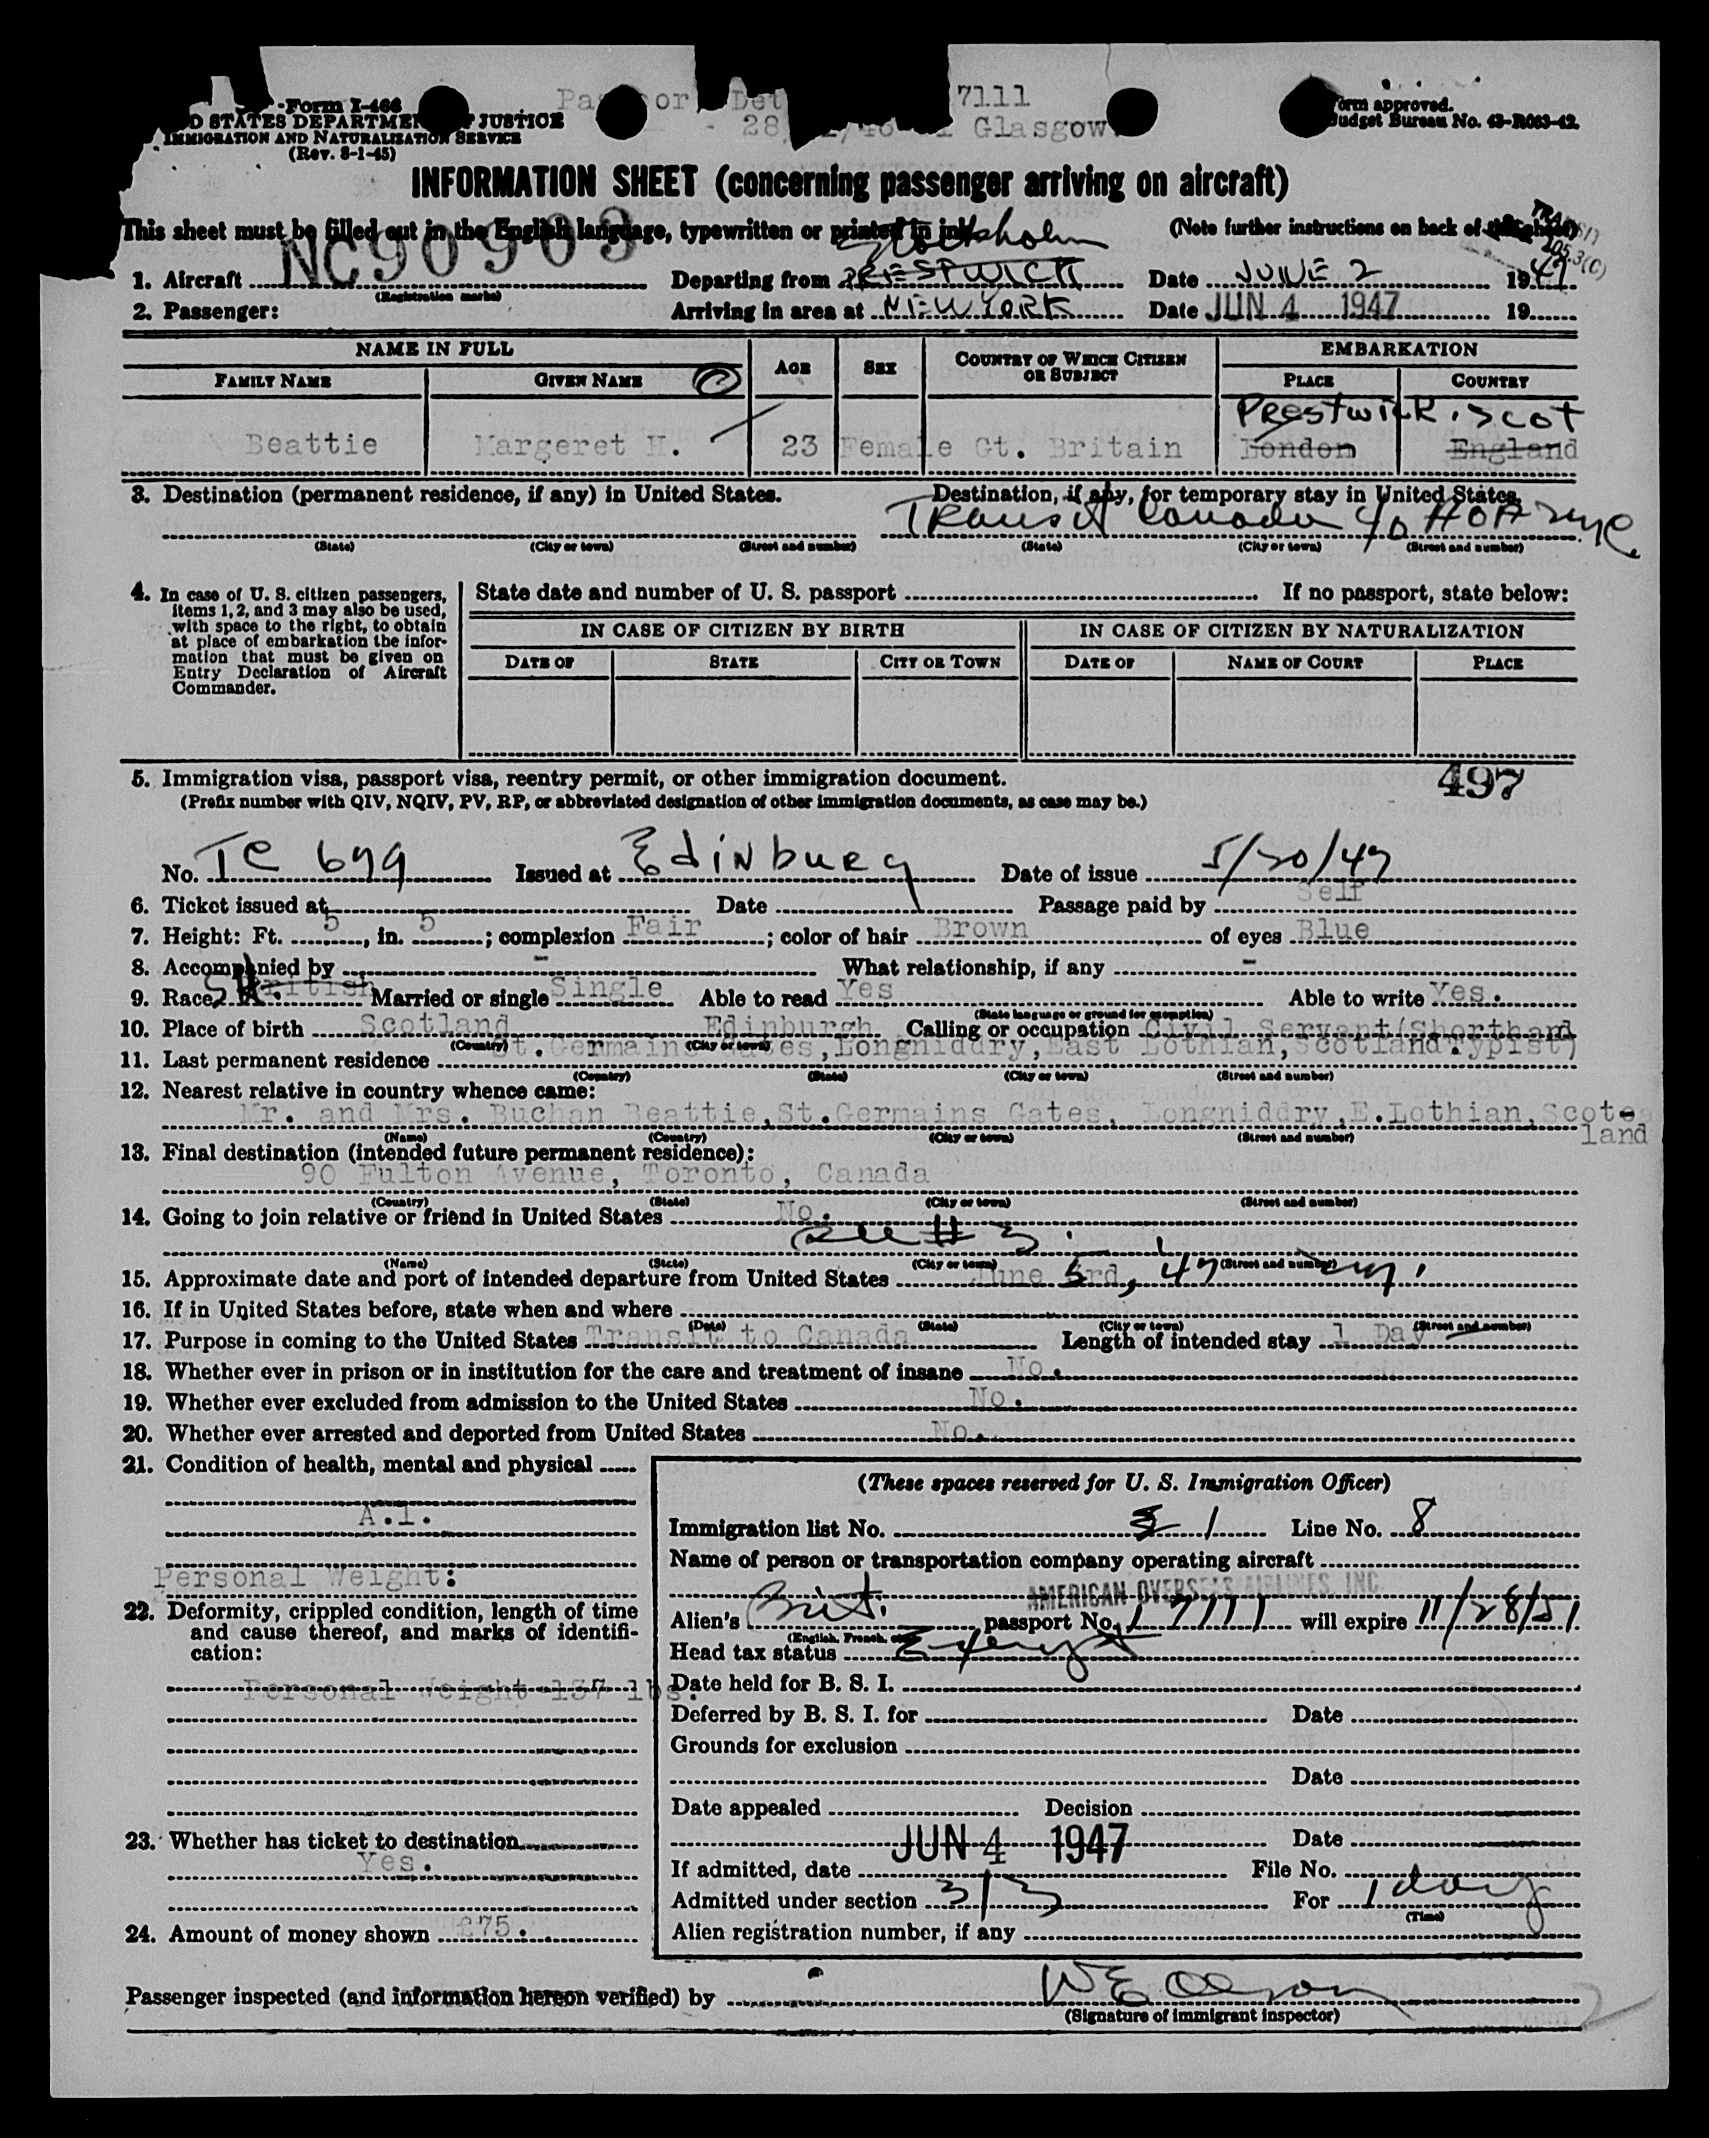 Form I-466
STATES DEPARTMENT OF JUSTICE
IMMIGRATION AND NATURALIZATION SERVICE
(Rev. 8-1-45)
7111
28 Glasgow.
Form approved.
Budget Bureau No. 43-R063-42.
INFORMATION SHEET (concerning passenger arriving on aircraft)
This sheet must be filled out in the English language, typewritten or printed in ink. (Note further instructions on back of this sheet)
TRANSIT
Stockholm
1. Aircraft NC90903 Departing from PRESTWICK Date JUNE 2 1947
(Registration marks)
2. Passenger: Arriving in area at NEW YORK Date JUN 4 1947 19
NAME IN FULL AGE SEX COUNTRY OF WHICH CITIZEN OR SUBJECT EMBARKATION
FAMILY NAME GIVEN NAME PLACE COUNTRY
Prestwick, Scot
Beattie Margeret H. 23 Female Gt. Britain London England
3. Destination (permanent residence, if any) in United States. Destination, if any, for temporary stay in United States.
Transit Canada c/o AOA NYC
(State) (City or town) (Street and number) (State) (City or town) (Street and number)
4. In case of U. S. citizen passengers, items 1, 2, and 3 may also be used, with space to the right, to obtain at place of embarkation the information that must be given on Entry Declaration of Aircraft Commander.
State date and number of U. S. passport If no passport, state below:
IN CASE OF CITIZEN BY BIRTH IN CASE OF CITIZEN BY NATURALIZATION
DATE OF STATE CITY OR TOWN DATE OF NAME OF COURT PLACE
5. Immigration visa, passport visa, reentry permit, or other immigration document. 497
(Prefix number with QIV, NQIV, PV, RP, or abbreviated designation of other immigration documents, as case may be.)
No. TC 699 Issued at Edinburg Date of issue 5/30/47
6. Ticket issued at Date Passage paid by Self
7. Height: Ft. 5, in. 5; complexion Fair; color of hair Brown of eyes Blue
8. Accompanied by - What relationship, if any -
9. Race British Married or single Single Able to read Yes Able to write Yes.
(State language or ground for exemption)
10. Place of birth Scotland Edinburgh Calling or occupation Civil Servant(Shorthand Typist)
(Country) (City or town)
11. Last permanent residence St. Germains Gates, Longniddry, East Lothian, Scotland.
(Country) (State) (City or town) (Street and number)
12. Nearest relative in country whence came:
Mr. and Mrs. Buchan Beattie, St.Germains Gates, Longniddry, E.Lothian, Scotland
(Name) (Country) (City or town) (Street and number)
13. Final destination (intended future permanent residence):
90 Fulton Avenue, Toronto, Canada
(Country) (State) (City or town) (Street and number)
14. Going to join relative or friend in United States No.
See # 3.
(Name) (State) (City or town) (Street and number)
15. Approximate date and port of intended departure from United States June 5rd, 47 NY.
16. If in United States before, state when and where
(Date) (State) (City or town) (Street and number)
17. Purpose in coming to the United States Transit to Canada Length of intended stay 1 Day
18. Whether ever in prison or in institution for the care and treatment of insane No.
19. Whether ever excluded from admission to the United States No.
20. Whether ever arrested and deported from United States No.
21. Condition of health, mental and physical
A.1.
Personal Weight:
22. Deformity, crippled condition, length of time and cause thereof, and marks of identification:
Personal Weight 137 lbs.
23. Whether has ticket to destination
Yes.
24. Amount of money shown £75.
(These spaces reserved for U. S. Immigration Officer)
Immigration list No. 1 Line No. 8
Name of person or transportation company operating aircraft
AMERICAN OVERSEAS AIRLINES, INC.
Alien's Brit. passport No. 17111 will expire 11/28/51.
(English, French, etc.)
Head tax status Exempt
Date held for B. S. I.
Deferred by B. S. I. for Date
Grounds for exclusion
Date
Date appealed Decision
Date
If admitted, date JUN 4 1947 File No.
Admitted under section 3/3 For 1 day
(Time)
Alien registration number, if any
Passenger inspected (and information hereon verified) by W E Olson
(Signature of immigrant inspector)